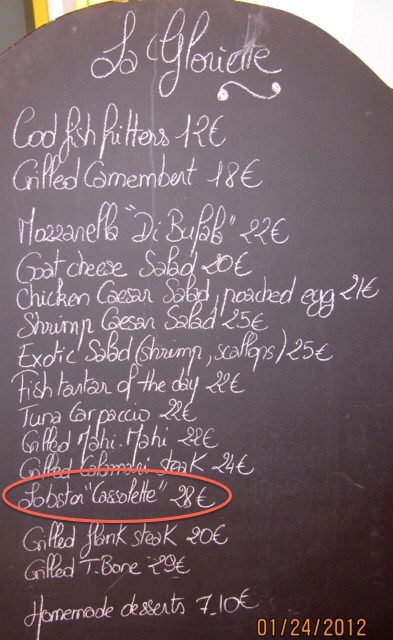 La Gloriette
Cod fish fritters 12€
Grilled Camembert 18€
Mozzarella "Di Bufala" 22€
Goat cheese Salad 20€
Chicken Caesar Salad, poached egg 21€
Shrimp Caesar Salad 25€
Exotic Salad (shrimp, scallops) 25€
Fish tartar of the day 22€
Tuna Carpaccio 22€
Grilled Mahi-Mahi 22€
Grilled Calamari steak 24€
Lobster "Cassolette" 28€
Grilled flank steak 20€
Grilled T.Bone 29€
Homemade desserts 7_10€
01/24/2012